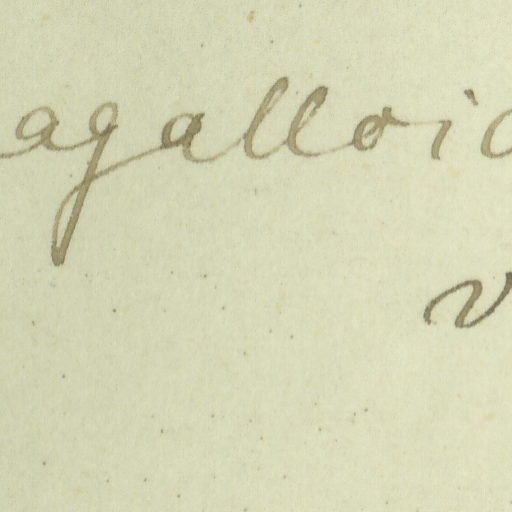 agalloi
v